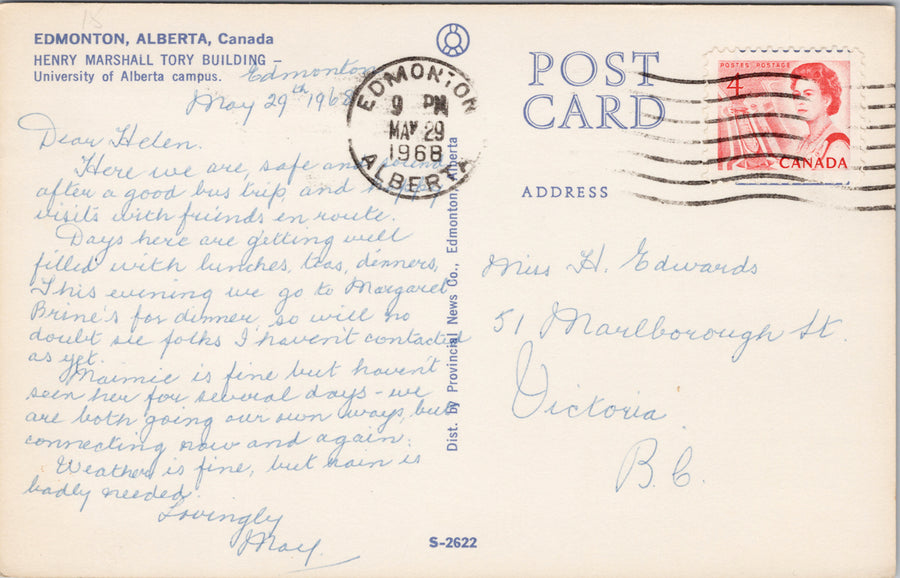 EDMONTON, ALBERTA, Canada
HENRY MARSHALL TORY BUILDING –
University of Alberta campus.
Edmonton
May 29th 1968
Dear Helen.
Here we are, safe and sound
after a good bus trip, and happy
visits with friends en route.
Days here are getting well
filled with lunches, teas, dinners,
This evening we go to Margaret
Brine's for dinner, so will no
doubt see folks I haven't contacted
as yet.
Maimie is fine but haven't
seen her for several days – we
are both going our own ways, but
connecting now and again.
Weather is fine, but rain is
badly needed.
Lovingly
May.
EDMONTON
9 PM
MAY 29
1968
ALBERTA
Dist. by Provincial News Co., Edmonton, Alberta
S-2622
POST
CARD
POSTES POSTAGE
4
CANADA
ADDRESS
Miss H. Edwards
51 Marlborough St.
Victoria
B.C.
15